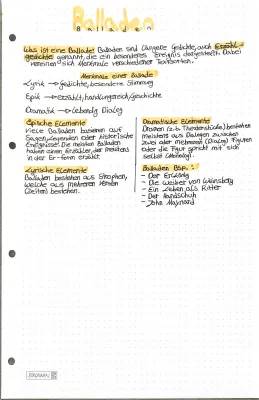 Balladen
Balladen
Was ist eine Ballade? Balladen sind längere Gedichte, auch Erzähl-
gedichte genannt, die ein besonderes Ereignis dargestellt. Dabei
vereinen sich Merkmale verschiedener Textsorten.
Merkmale einer Ballade
Lyrik → Gedichte, besondere Stimmung
Epik → Erzählt, handlungsreich, Geschichte
Dramatik → Lebendig Dialog
Epische Elemente
Viele Balladen basieren auf
Sagen, Legenden oder historische
Ereignisse. Die meisten Balladen
haben einen Erzähler, der meistens
in der Er-form erzählt.
Lyrische Elemente
Balladen bestehen aus Strophen,
welche aus mehreren Versen
(Zeilen) bestehen.
Dramatische Elemente
Dramen (z.b. Theaterstücke) bestehen
meistens aus Dialogen zwischen
zwei oder mehreren (Dialog) Figuren
oder die Figur spricht mit sich
selbst (Monolog).
Balladen Bsp.:
- Der Erlkönig
- Die Weiber von Winsberg
- Ein Leben als Ritter
- Der Handschuh
- John Maynard
BRUNNEN